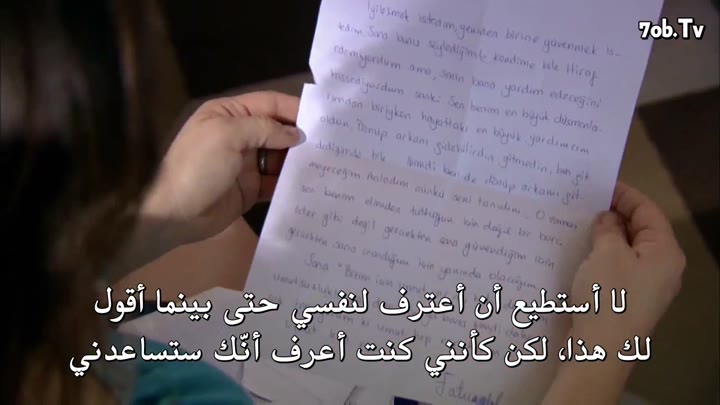 7ob.Tv
İyileşmek istedim, yeniden birine güvenmek is-
tedim. Sana bunu söylediğimde kendime bile itiraf
edemiyordum ama, senin bana yardım edeceğini
hissediyordum sanki. Sen benim en büyük düşmanla-
rımdan biriyken hayattaki en büyük yardımcım
oldun. Dönüp arkanı gidebilirdin gitmedin, ben git
dediğimde bile. Şimdi ben de dönüp arkamı git-
meyeceğim. Anladım çünkü seni tanıdım. O zaman
sen benim elimden tuttuğun için değil bir borç
öder gibi değil gerçekten sana güvendiğim için
gerçekten sana inandığım için yanında olacağım
Sana "Benim için
لا أستطيع أن أعترف لنفسي حتى بينما أقول
لك هذا، لكن كأنني كنت أعرف أنّك ستساعدني